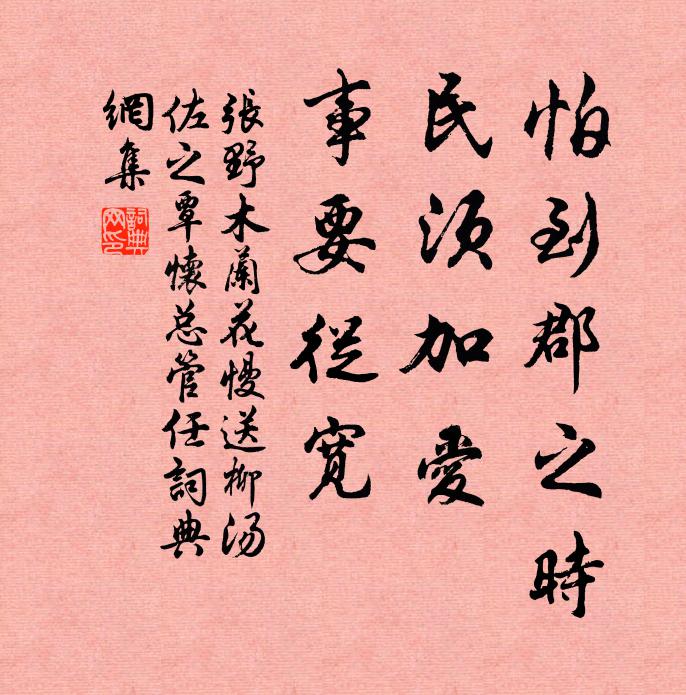 怕到郡之時
民須加愛
事要從寬
張野木蘭花慢送柳湯
佐之覃懷总管任詞典
網集
詞典網印